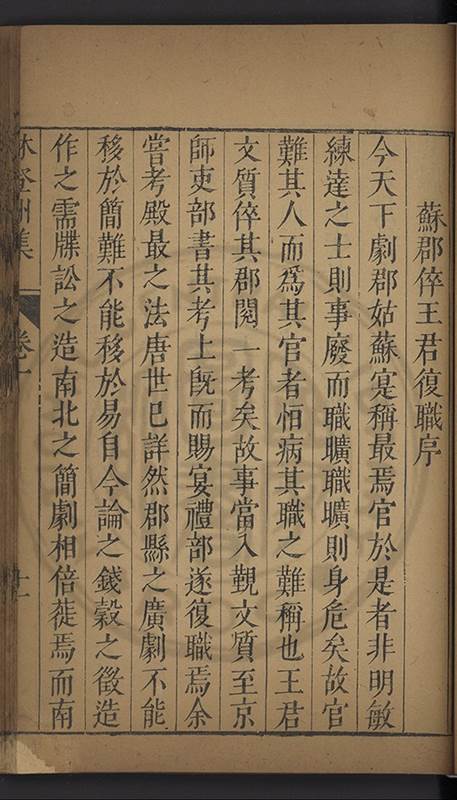 蘇郡倅王君復職序
今天下劇郡姑蘇寔稱最焉官於是者非明敏
練達之士則事廢而職曠職曠則身危矣故官
難其人而爲其官者恒病其職之難稱也王君
文質倅其郡閱一考矣故事當入覲文質至京
師吏部書其考上旣而賜宴禮部遂復職焉余
嘗考殿最之法唐世已詳然郡縣之廣劇不能
移於簡難不能移於易自今論之錢穀之徵造
作之需牒訟之造南北之簡劇相倍蓰焉而南
林登州集 卷十 十一